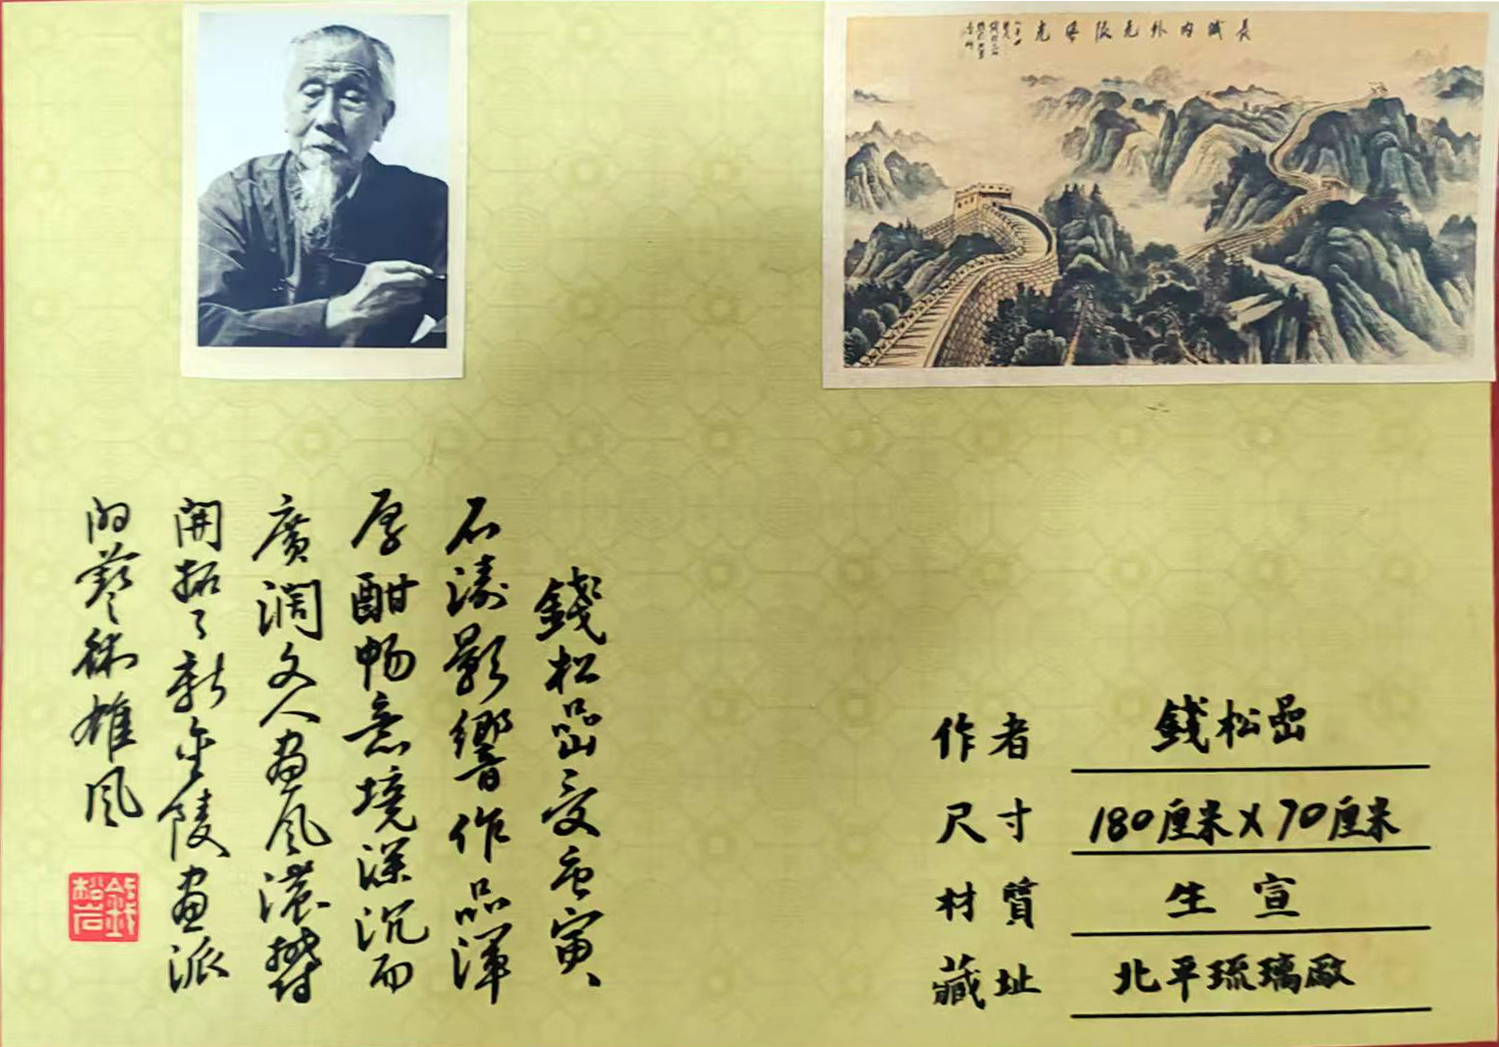 長城内外
錢松嵒受唐寅、
石涛影響作品渾
厚酣畅意境深沉而
廣濶文人畫風濃欝
開拓了新金陵畫派
的藝術雄風
作者 錢松嵒
尺寸 180厘米X70厘米
材質 生宣
藏址 北平琉璃廠